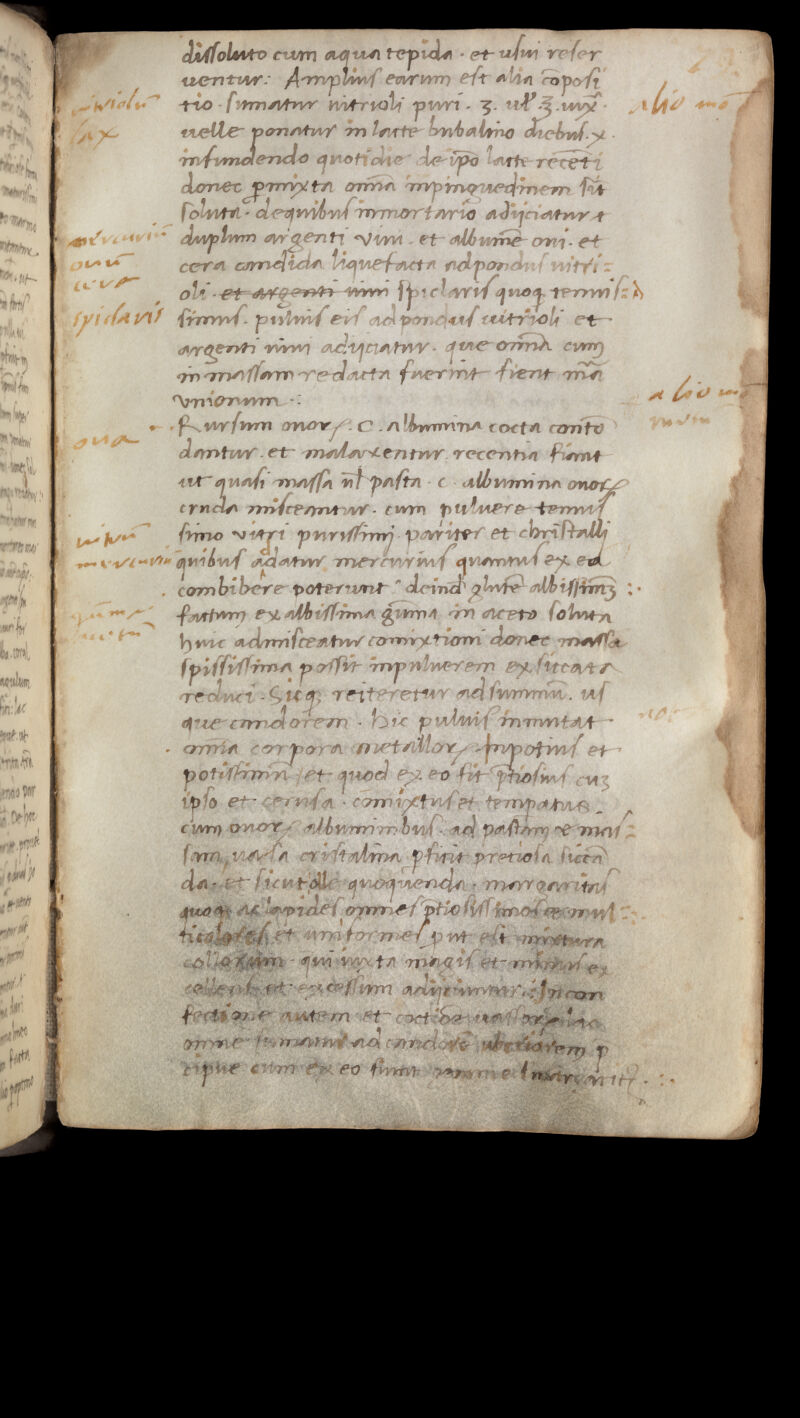 dissoluto cum aqua tepida · et usui reser
uentur: Amplius earum est alia cōposi
tio · sumatur uitrioli puri · ʒ.
uelle ponatur in lacte bubalino diebus · x ·
infundendo quotidie de ip̄o lacte recēti
donec ꝑmixta omīa inpinguedinem sīt
soluta · dequibus inmortario adijciatur
duplum argenti uiui · et albumē oui · et
cera candida liquefacta adpondus uitri=
oli · et argenti uiui spiclaris quoq tenuis=
simus · puluis eis adpondus uitrioli et
argenti uiui adijciatur · que omīa cum
in massam redacta fuerint fient
vnionum ·:
Rursum ouoꝝ · C · albumina cocta contū
dantur · et malaxentur recentia fiant
ut quasi massa ul̄ pasta · c · albumina ouoꝝ
cruda misceantur · cum puluere tenuis
simo vitri purissimi pariter et christalli
quibus adatur mercurius quantus ex ea
combibere poterunt deind glutē albissimū :·
factum ex albissima gūma in aceto soluta
huic admisceatur comixtioni donec massa
spississima possit inpuluerem exsiccata
reduci · Sicq reiteretur ad summū · us
que candorem · Hic puluis inmutat
omīa corpora metalloꝝ inpotius et
potissimū et quod ex eo fit p̄tiosius cuꝫ
ipso et cerusa · comixtus et tempatus
cum ouoꝝ albuminibus · ad pastam ⁊ mas=
sam, uasa cristalina ꝑficit pretiosa siccā
da · et sicut quoquenda · margaritas
quoq ac lapides omnes p̄tiosissimos ⁊ mul=
ticolores et uniformes put est mixtura
colloꝝum · qui iuxta magis et minus ex
cellent et excessum adijciuntur · Incon
fectione autem et coctione uasoꝝ
omne sumatur ad candorē uberiorem p
cipue cum ex eo fiunt
ouū
cera
spiclaris
ova
vitrū
mercuriū
gūma
alio mō
alio mō